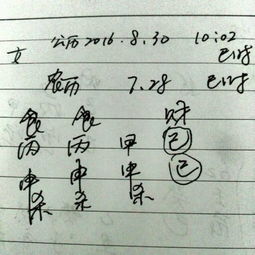 公历2016.8.30 10:02
女 巳时
农历 7.28 巳时
食 食 财
丙 丙 甲 己
申 申 申 巳
杀 杀 杀